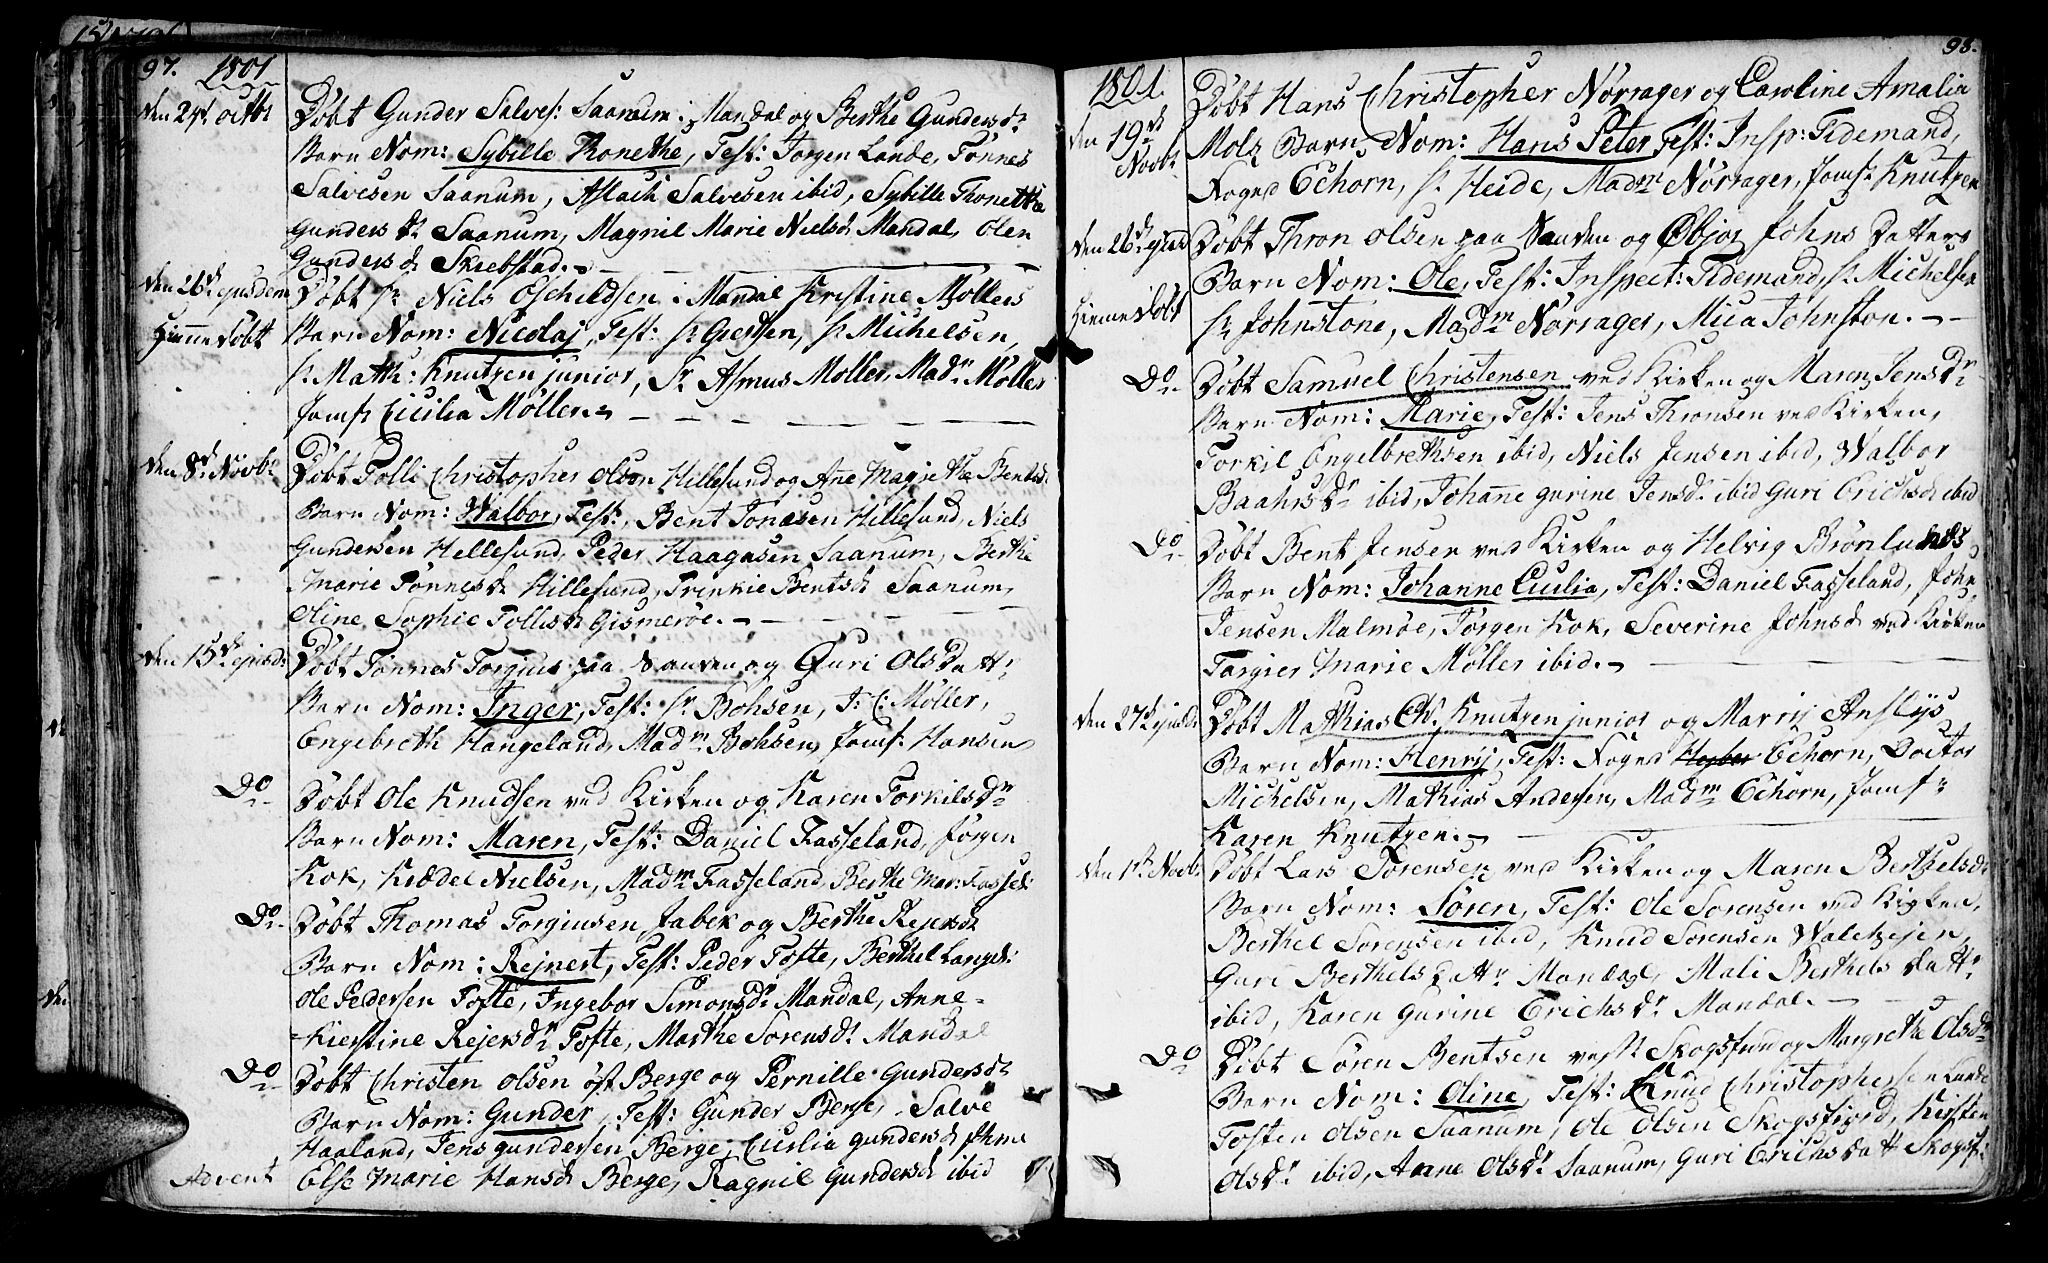 97. 1801
den 24de octbr Døbt Gunder Salves: Saanum i Mandal og Berthe Gundersdr
Barn Nom: Sybille Thonethe, Test: Jørgen Lande, Tønnes
Salvesen Saanum, Aslach Salvesen ibid, Sybille Thonette
Gundersdr Saanum, Magnil Marie Nielsd Mandal, Olen
Gundersd Skiebstad. -
den 26de ejusdem Døbt Sr Niels Eschildsen i Mandal Kristine Møllers
Hiemmedøbt Barn Nom: Nicolaj, Test: Sr Giertsen, Sr Michelsen,
Sr Matth: Knutzen junior, Sr Asmus Møller, Madm Møller
Jomfr Cicilia Møller. -
den 8de Novbr Døbt Tolli Christopher Olsen Hillesund og Ane Magrethe Bentsd
Barn Nom: Walbor, Test: Bent Jonæsen Hillesund, Niels
Gundersen Hellesund, Peder Haagasen Saanum, Berthe
Marie Tønnesd Hillesund, Trinkie Bentsd Saanum,
Oline Sophie Tollisd Gismerøe. -
den 15de ejusd: Døbt Tønnes Torgius paa Sanden og Guri Olsdattr
Barn Nom: Inger, Test: Sr Bohsen, J: C: Møller,
Engebreth Hangeland, Madm Bohsen, Jomf: Hansen
Do- Døbt Ole Knudsen ved Kirken og Karen Torkilsdr
Barn Nom: Maren, Test: Daniel Fasseland, Jørgen
Kok, Kiædel Nielsen, Madm Fasseland, Berthe Mar: Fassel:
Do- Døbt Thomas Torgiusen Jabek og Berthe Rejersd
Barn Nom: Rejnert, Test: Peder Tofte, Berthel Langel:
Ole Pedersen Tofte, Ingebor Simonsdr Mandal, Anne-
-Kierstine Rejersdr Tofte, Marthe Sørensdr Mandal
Do- Døbt Christen Olsen øst Berge og Pernille Gundersdr
Barn Nom: Gunder, Test: Gunder Berge, Salve
Haaland, Jens Gundersen Berge, Cicilia Gundersd
Advent Else Marie Hansd Berge, Ragnil Gundersd ibid
98.
1801.
den 19de Novbr Døbt Hans Christopher Nørrager og Caroline Amalia
Molz Barn Nom: Hans Peter, Test: Insp: Tidemand,
Foged Echorn, Sr Heide, Madm Nørrager, Jomf: Knutzen
den 26de ejusd Døbt Thron Olsen paa Sanden og Objor Johns Datters
Barn Nom: Ole, Test: Inspect: Tidemand, Sr Michelsen
Hiemmedøbt Sr Johnstone, Madm Nørrager, Mica Johnston. -
Do- Døbt Samuel Christensen ved Kirken og Maren Jensdr
Barn Nom: Marie, Test: Jens Thronsen ved Kirken,
Torkil Engelbrethsen ibid, Niels Jensen ibid, Walbor
Baahrsdr ibid, Johanne Gurine Jensd ibid Guri Erichsd ibid
Do- Døbt Bent Jensen ved Kirken og Helvig Brønlunds
Barn Nom: Johanne Cicilia, Test: Daniel Fasseland, John
Jensen Malmøe, Jørgen Kok, Severine Johnsd ved Kirken
Targier Marie Møller ibid. -
den 27de ejusd: Døbt Matthias Chr. Knutzen junior og Marrij Anslijs
Barn Nom: Henrij, Test: Foged Echorn, Doctor
Michelsen, Mathias Andersen, Madm Echorn, Jomfr
Karen Knutzen. -
den 1te Novb. Døbt Lars Sørensen ved Kirken og Maren Berthelsdr
Barn Nom: Søren, Test: Ole Sørensen ved Kirken,
Berthel Sørensen ibid, Knud Sørensen Walehejen,
Guri Berthelsdattr Mandal, Mali Berthelsdattr
ibid, Karen Gurine Erichsdr Mandal. -
Do Døbt Søren Bentsen vestr Skogsfiord og Margrethe Olsdr
Barn Nom: Oline, Test: Knud Christophersen Lande
Tosten Olsen Saanum, Ole Olsen Skogsfiord, Kisten
Olsdr ibid, Anne Olsdr Saanum, Guri Erichsdatt Skogsf: